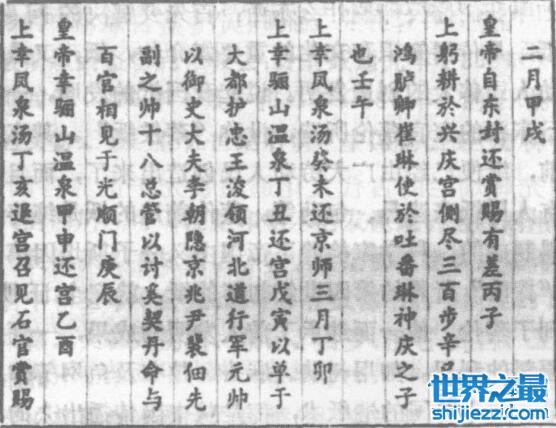 二月甲戌
皇帝自东封还赏赐有差丙子
上躬耕於兴庆宫侧尽三百步辛巳
鸿胪卿崔琳使於吐番琳神庆之子
也壬午
上幸凤泉汤癸未还京师三月丁卯
上幸骊山温泉丁丑还宫戊寅以单于
大都护忠王浚领河北道行军元帅
以御史大夫李朝隐京兆尹裴伷先
副之帅十八总管以讨奚契丹命与
百官相见于光顺门庚辰
皇帝幸骊山温泉甲申还宫乙酉
上幸凤泉汤丁亥还宫召见百官赏赐
世界之最
shijiezz.com